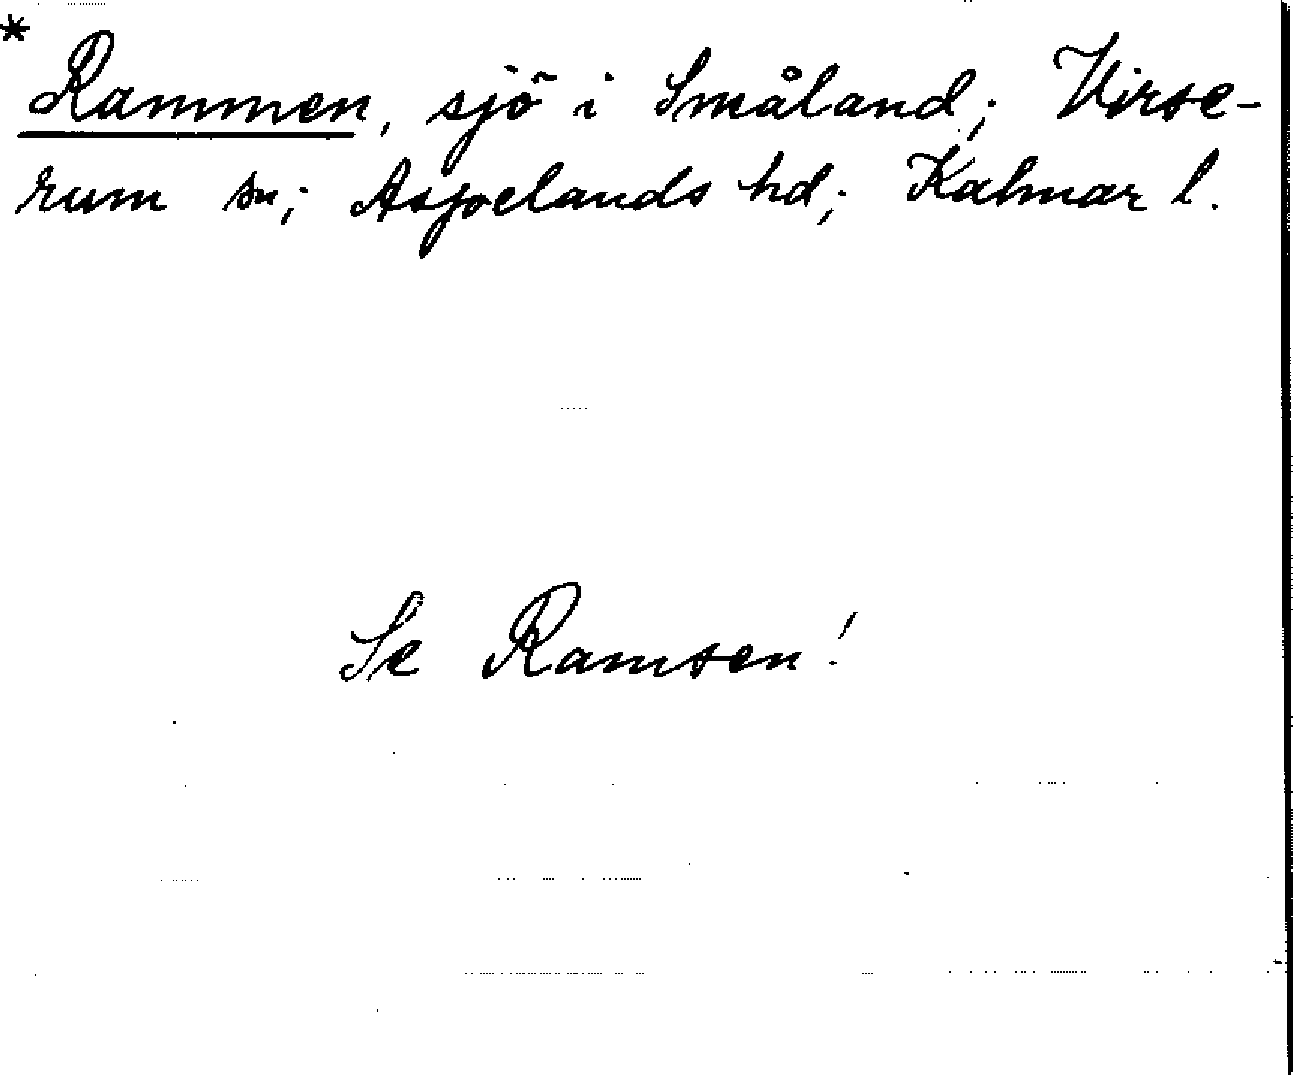 *
Rammen, sjö i Småland; Virse-
rum sn; Aspelands hd; Kalmar l.
Se Ramsen!